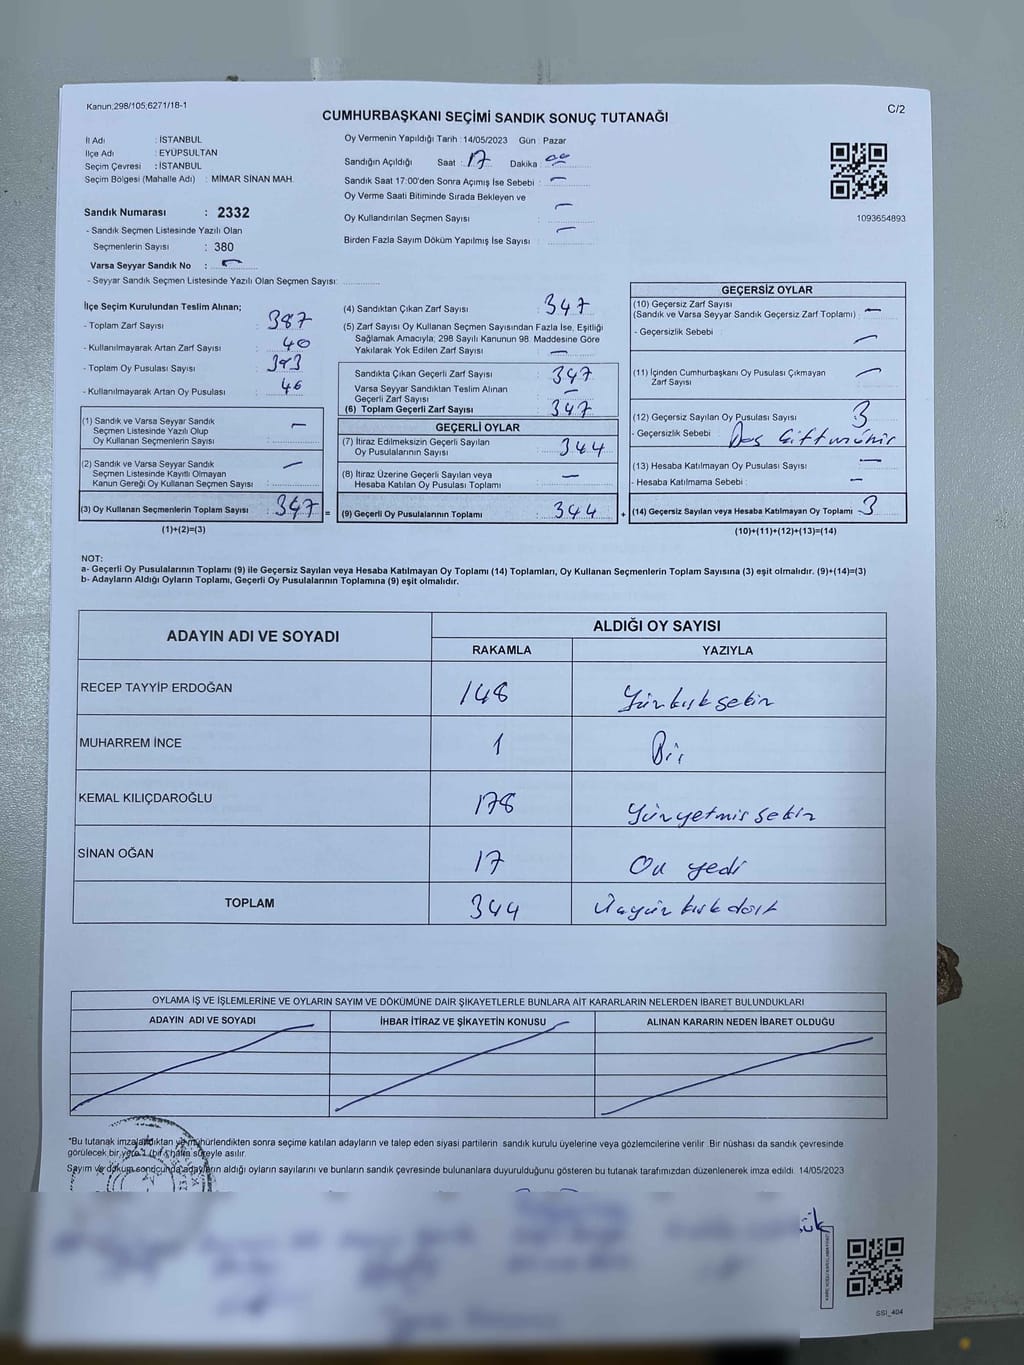 Kanun;298/105;6271/18-1
C/2
CUMHURBAŞKANI SEÇİMİ SANDIK SONUÇ TUTANAĞI
İl Adı : İSTANBUL
İlçe Adı : EYÜPSULTAN
Seçim Çevresi : İSTANBUL
Seçim Bölgesi (Mahalle Adı) : MİMAR SİNAN MAH.
Sandık Numarası : 2332
- Sandık Seçmen Listesinde Yazılı Olan
Seçmenlerin Sayısı : 380
Varsa Seyyar Sandık No : -
- Seyyar Sandık Seçmen Listesinde Yazılı Olan Seçmen Sayısı:
Oy Vermenin Yapıldığı Tarih : 14/05/2023 Gün : Pazar
Sandığın Açıldığı Saat : 17 Dakika : 00
Sandık Saat 17:00'den Sonra Açımış İse Sebebi : -
Oy Verme Saati Bitiminde Sırada Bekleyen ve
Oy Kullandırılan Seçmen Sayısı : -
Birden Fazla Sayım Döküm Yapılmış İse Sayısı : -
1093654893
İlçe Seçim Kurulundan Teslim Alınan;
- Toplam Zarf Sayısı : 387
- Kullanılmayarak Artan Zarf Sayısı : 40
- Toplam Oy Pusulası Sayısı : 393
- Kullanılmayarak Artan Oy Pusulası : 46
(1) Sandık ve Varsa Seyyar Sandık
Seçmen Listesinde Yazılı Olup
Oy Kullanan Seçmenlerin Sayısı : -
(2) Sandık ve Varsa Seyyar Sandık
Seçmen Listesinde Kayıtlı Olmayan
Kanun Gereği Oy Kullanan Seçmen Sayısı : -
(3) Oy Kullanan Seçmenlerin Toplam Sayısı : 347 =
(1)+(2)=(3)
(4) Sandıktan Çıkan Zarf Sayısı : 347
(5) Zarf Sayısı Oy Kullanan Seçmen Sayısından Fazla İse, Eşitliği
Sağlamak Amacıyla; 298 Sayılı Kanunun 98. Maddesine Göre
Yakılarak Yok Edilen Zarf Sayısı : -
Sandıkta Çıkan Geçerli Zarf Sayısı : 347
Varsa Seyyar Sandıktan Teslim Alınan
Geçerli Zarf Sayısı : -
(6) Toplam Geçerli Zarf Sayısı : 347
GEÇERLİ OYLAR
(7) İtiraz Edilmeksizin Geçerli Sayılan
Oy Pusulalarının Sayısı : 344
(8) İtiraz Üzerine Geçerli Sayılan veya
Hesaba Katılan Oy Pusulası Toplamı : -
(9) Geçerli Oy Pusulalarının Toplamı : 344 +
GEÇERSİZ OYLAR
(10) Geçersiz Zarf Sayısı
(Sandık ve Varsa Seyyar Sandık Geçersiz Zarf Toplamı) : -
- Geçersizlik Sebebi : -
(11) İçinden Cumhurbaşkanı Oy Pusulası Çıkmayan
Zarf Sayısı : -
(12) Geçersiz Sayılan Oy Pusulası Sayısı : 3
- Geçersizlik Sebebi : Boş Çift mühür
(13) Hesaba Katılmayan Oy Pusulası Sayısı : -
- Hesaba Katılmama Sebebi : -
(14) Geçersiz Sayılan veya Hesaba Katılmayan Oy Toplamı : 3
(10)+(11)+(12)+(13)=(14)
NOT:
a- Geçerli Oy Pusulalarının Toplamı (9) ile Geçersiz Sayılan veya Hesaba Katılmayan Oy Toplamı (14) Toplamları, Oy Kullanan Seçmenlerin Toplam Sayısına (3) eşit olmalıdır. (9)+(14)=(3)
b- Adayların Aldığı Oyların Toplamı, Geçerli Oy Pusulalarının Toplamına (9) eşit olmalıdır.
ADAYIN ADI VE SOYADI ALDIĞI OY SAYISI
RAKAMLA YAZIYLA
RECEP TAYYİP ERDOĞAN 148 Yüzkırksekiz
MUHARREM İNCE 1 Bir
KEMAL KILIÇDAROĞLU 178 Yüzyetmiş sekiz
SİNAN OĞAN 17 On yedi
TOPLAM 344 Üçyüz kırk dört
OYLAMA İŞ VE İŞLEMLERİNE VE OYLARIN SAYIM VE DÖKÜMÜNE DAİR ŞİKAYETLERLE BUNLARA AİT KARARLARIN NELERDEN İBARET BULUNDUKLARI
ADAYIN ADI VE SOYADI İHBAR İTİRAZ VE ŞİKAYETİN KONUSU ALINAN KARARIN NEDEN İBARET OLDUĞU
*Bu tutanak imzalandıktan ve mühürlendikten sonra seçime katılan adayların ve talep eden siyasi partilerin sandık kurulu üyelerine veya gözlemcilerine verilir. Bir nüshası da sandık çevresinde
görülecek bir yere 1 (bir) hafta süreyle asılır.
Sayım ve döküm sonucunda adayların aldığı oyların sayılarını ve bunların sandık çevresinde bulunanlara duyurulduğunu gösteren bu tutanak tarafımızdan düzenlenerek imza edildi. 14/05/2023
SSI_404